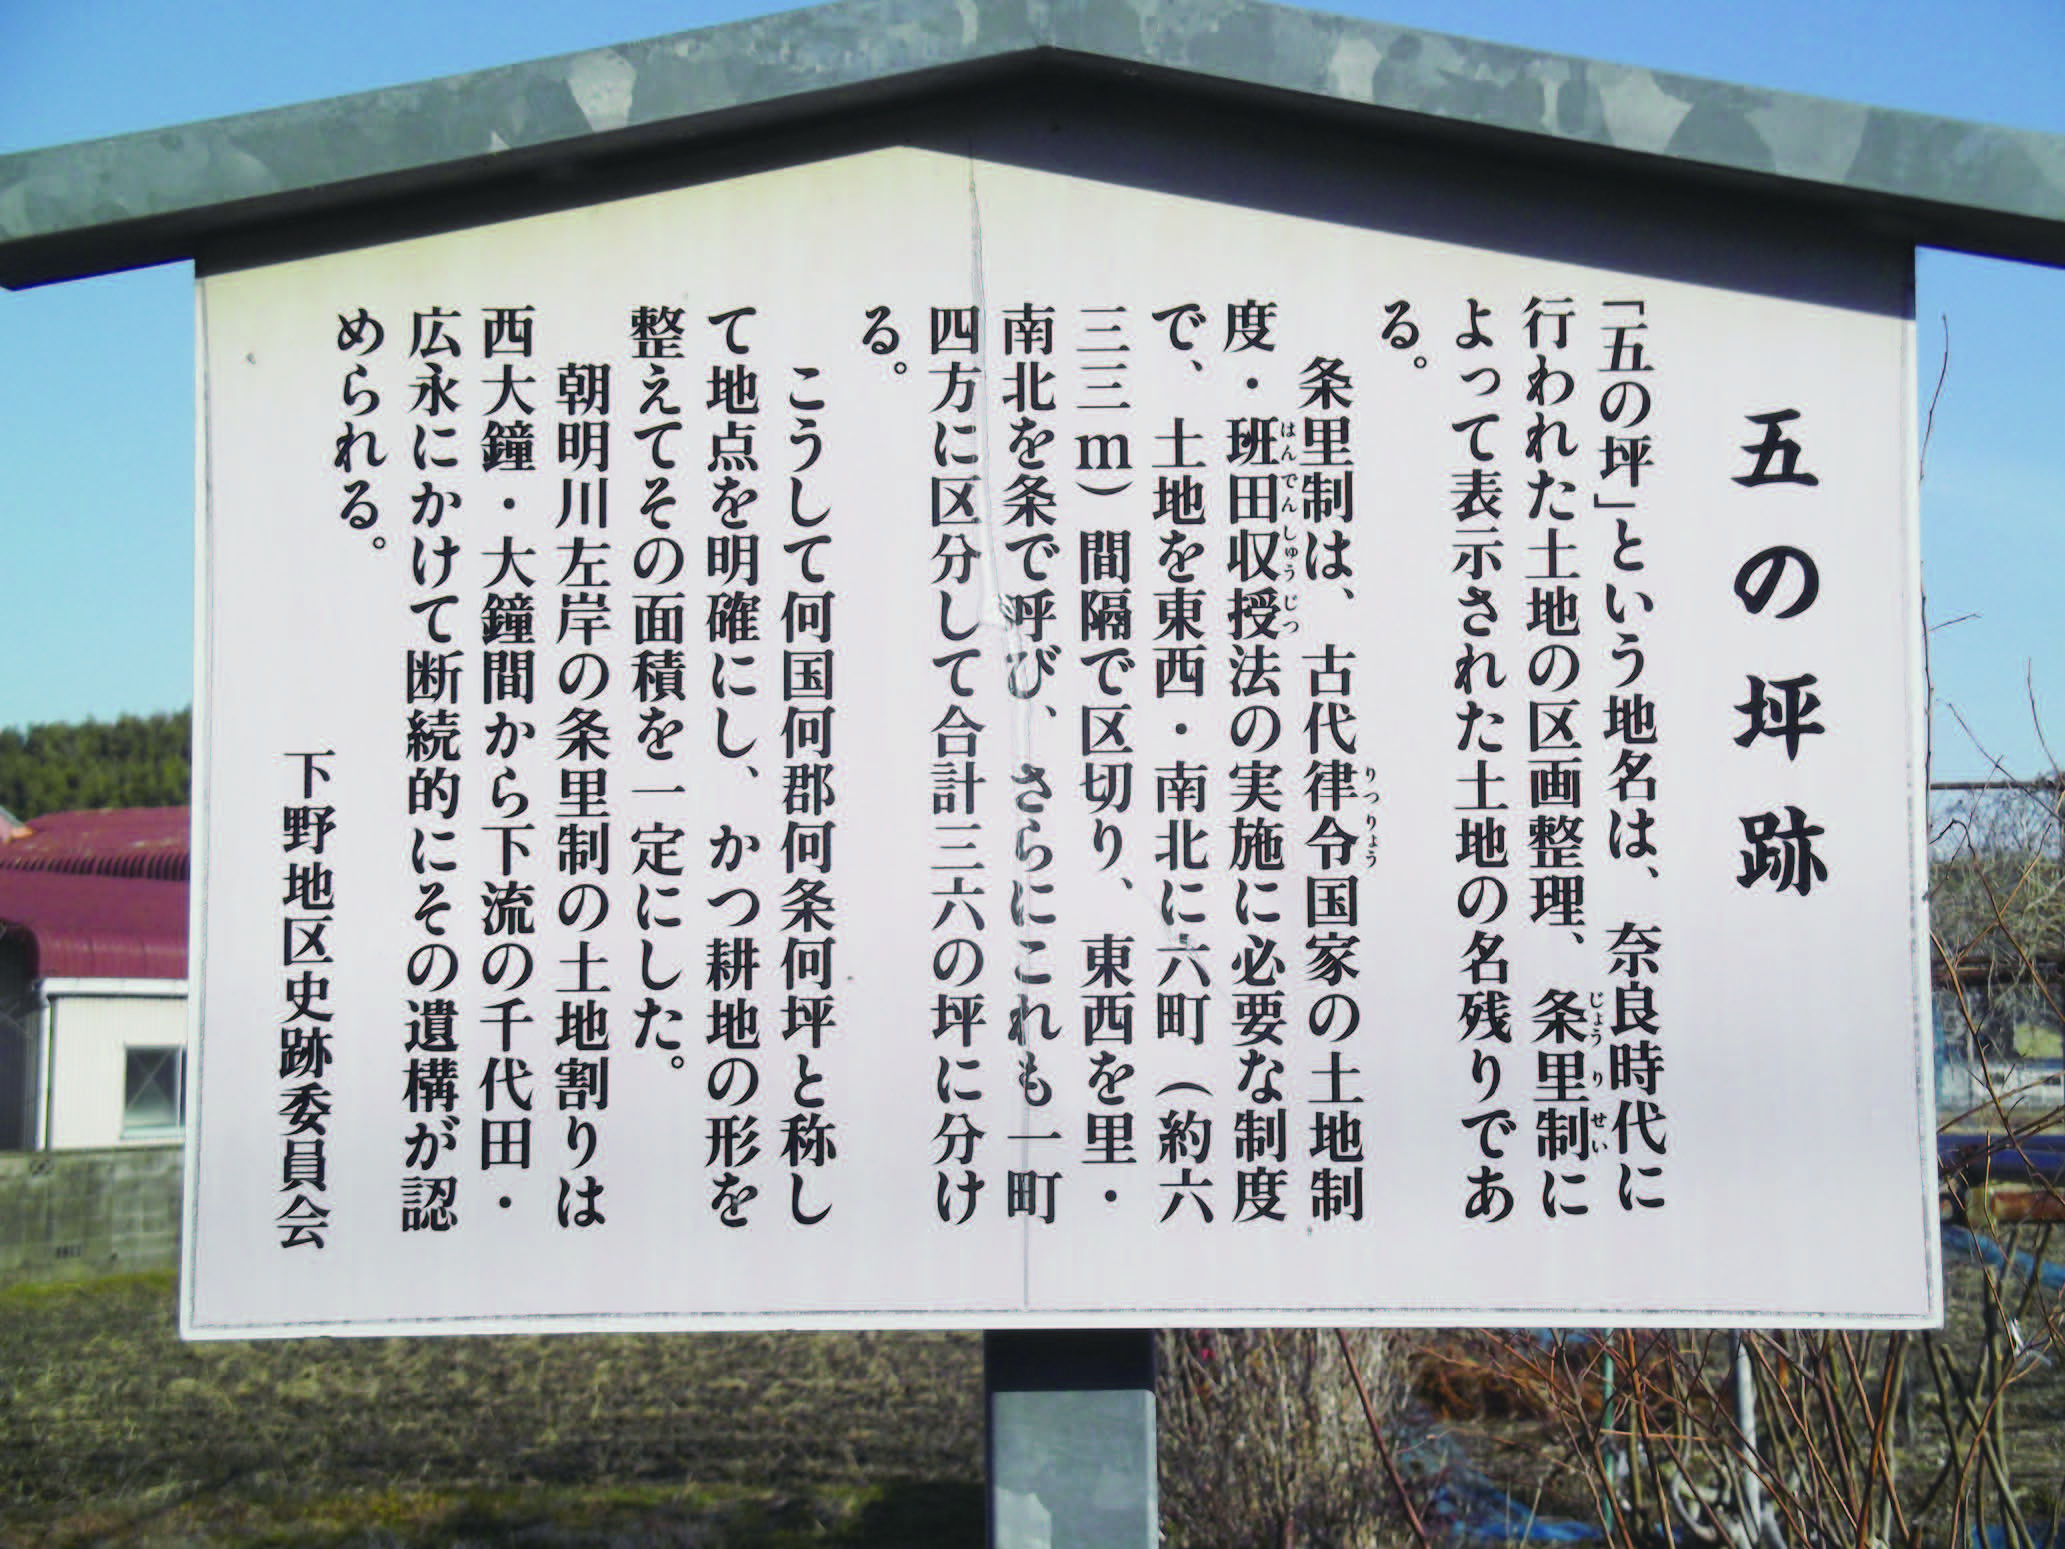 五の坪跡
「五の坪」という地名は、奈良時代に
行われた土地の区画整理、条里制に
じょうりせい
よって表示された土地の名残りであ
る。
条里制は、古代律令国家の土地制
りつりょう
度・班田収授法の実施に必要な制度
はんでんしゅうじつ
で、土地を東西・南北に六町（約六
三三m）間隔で区切り、東西を里・
南北を条で呼び、さらにこれも一町
四方に区分して合計三六の坪に分け
る。
こうして何国何郡何条何坪と称し
て地点を明確にし、かつ耕地の形を
整えてその面積を一定にした。
朝明川左岸の条里制の土地割りは
西大鐘・大鐘間から下流の千代田・
広永にかけて断続的にその遺構が認
められる。
下野地区史跡委員会